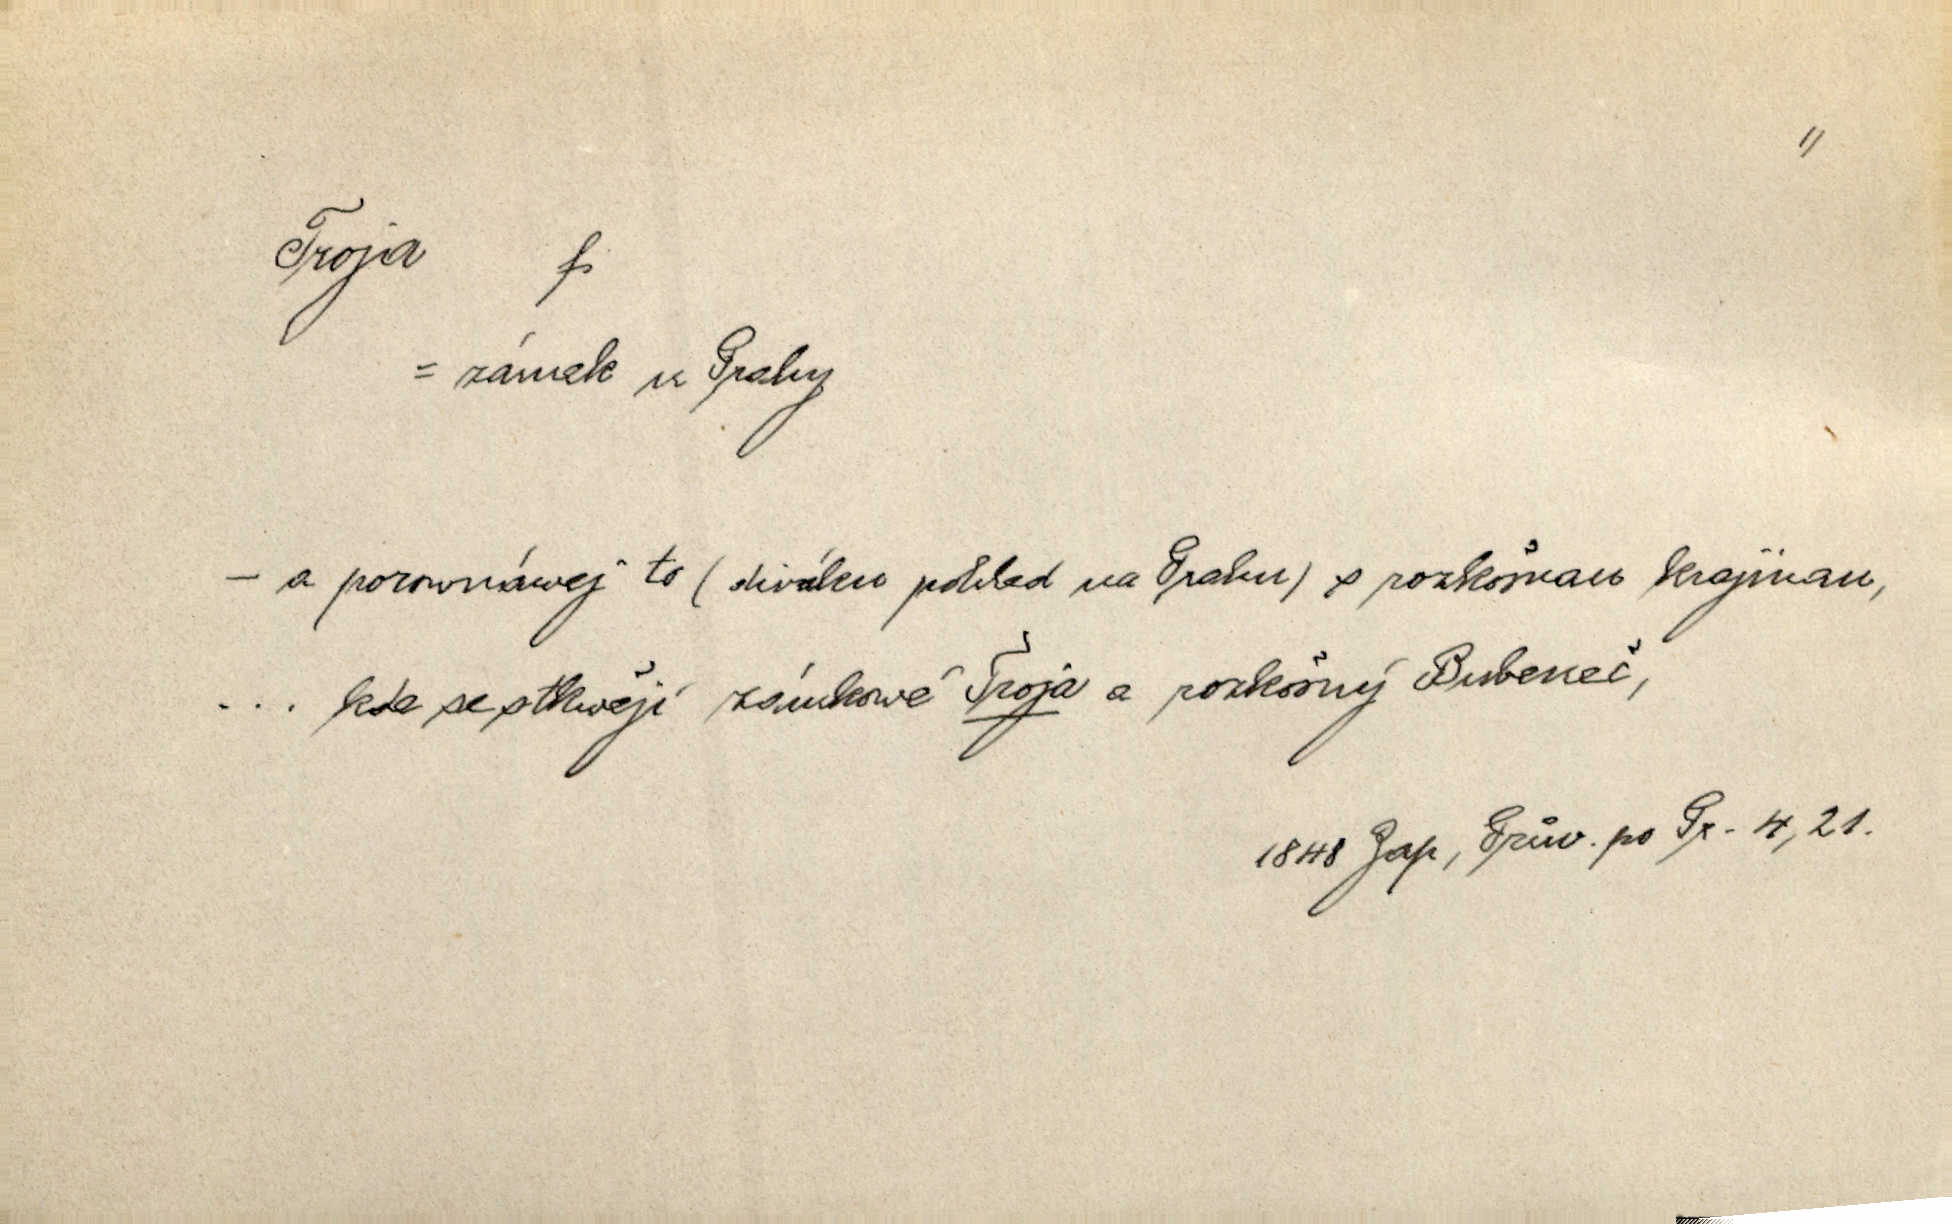 "
Troja f
= zámek u Prahy
– a porownáwej to (diváku pohled na Prahu) s rozkošnau krajinau,
... kde se stkwějí zámkowé Troja a rozkošný Bubeneč,
1848 Zap, Průw. po Pr. 4, 21.